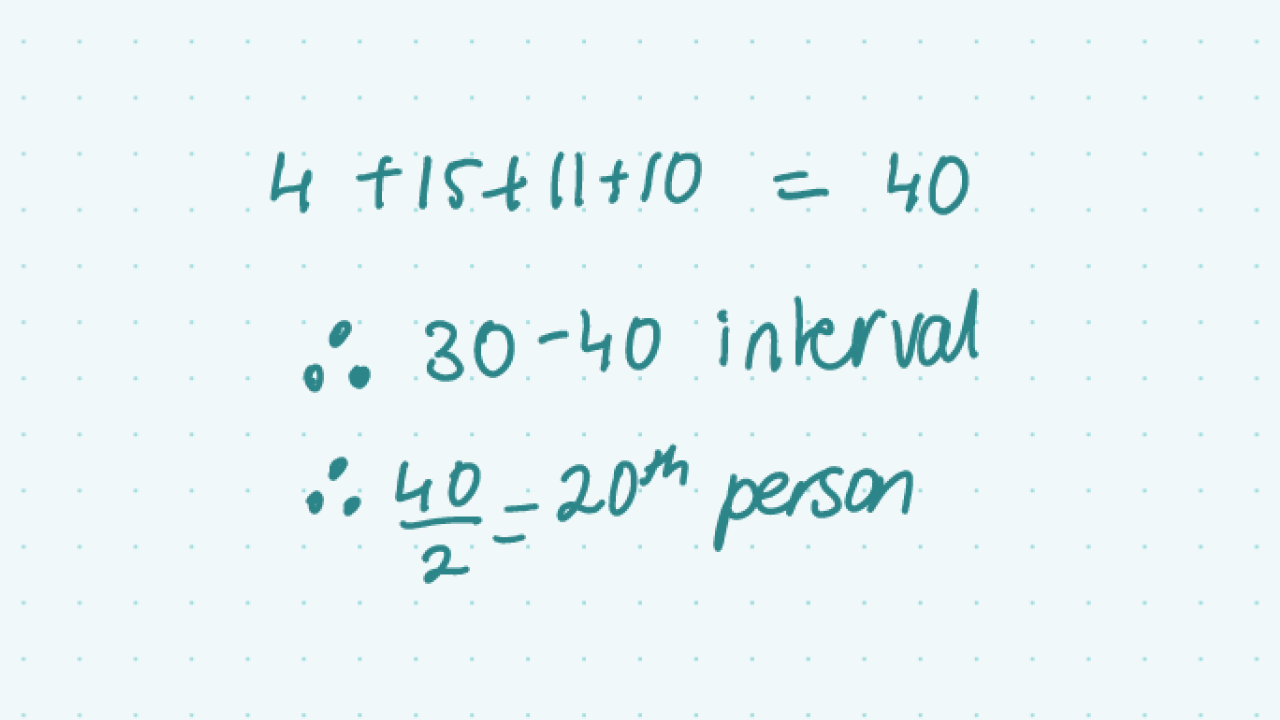 4 + 15 + 11 + 10 = 40
∴ 30 - 40 interval
∴ 40/2 = 20th person